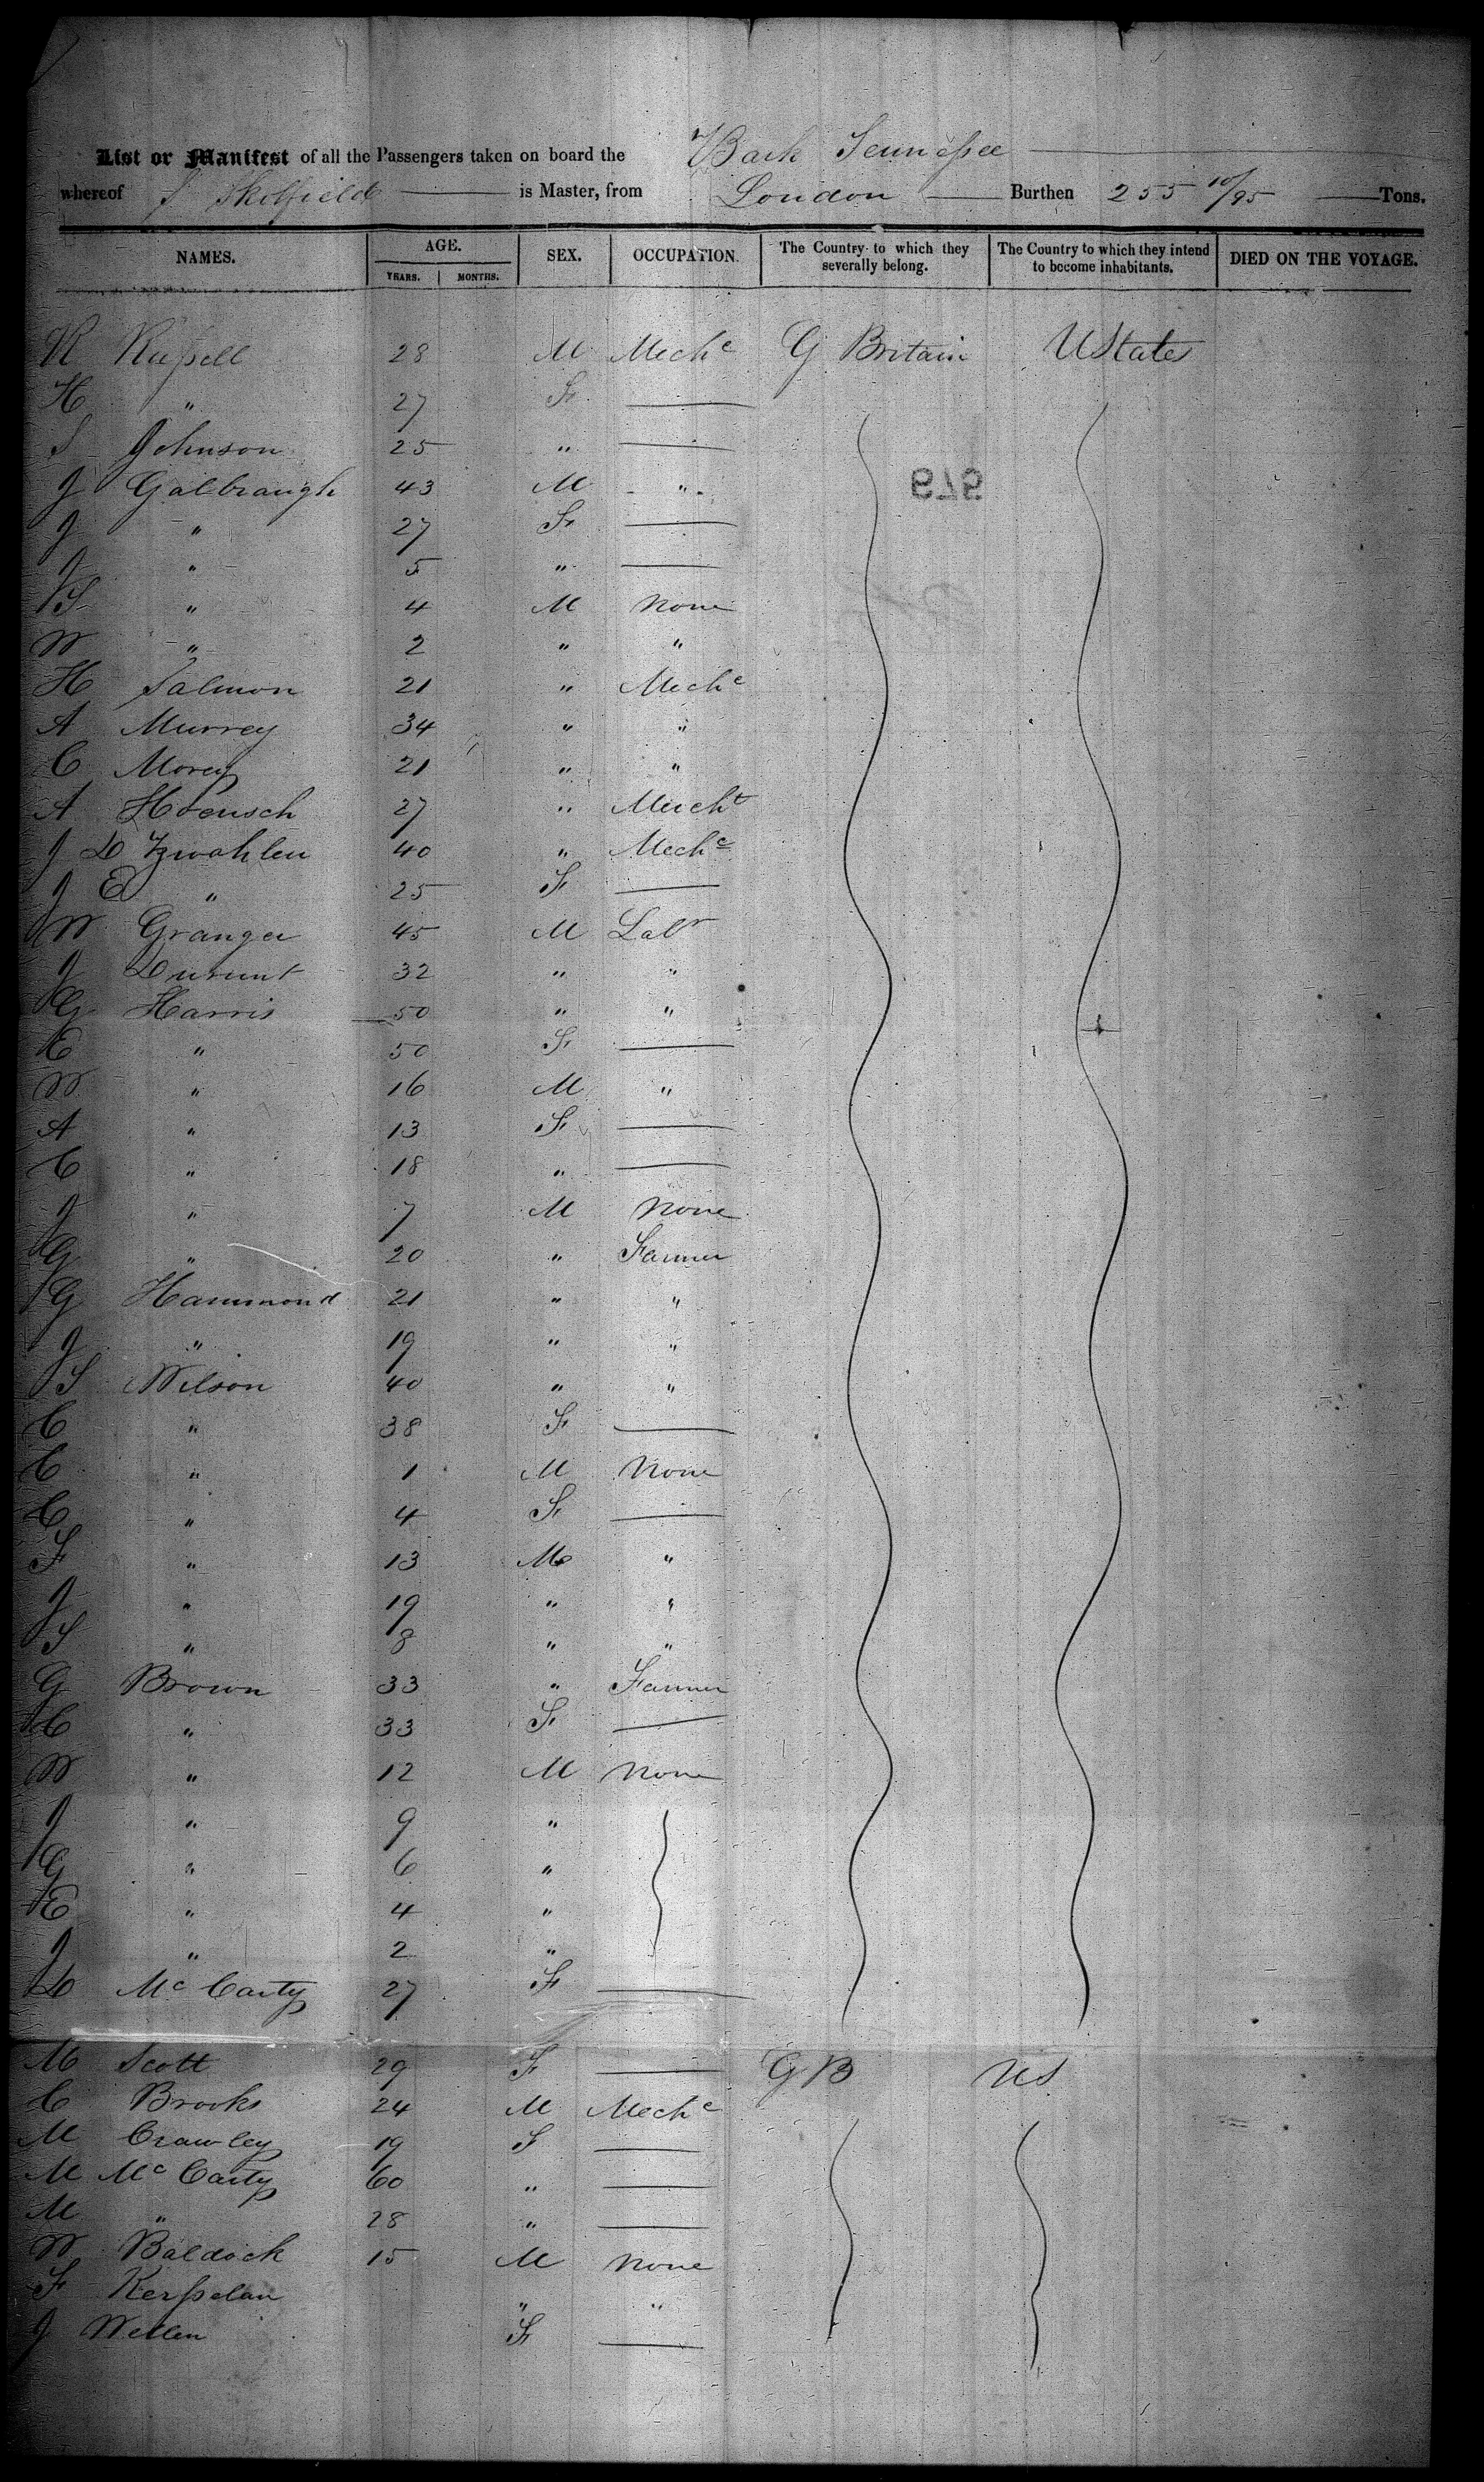 List or Manifest of all the Passengers taken on board the Bark Tennessee
whereof J Skolfield is Master, from London Burthen 255 10/95 Tons.
NAMES. AGE. YEARS. MONTHS. SEX. OCCUPATION. The Country to which they severally belong. The Country to which they intend to become inhabitants. DIED ON THE VOYAGE.
R Russell 28 M Mechc G Britain UStates
H " 27 F
S Johnson 25 "
J Galbraugh 43 M "
979
J " 27 F
J " 5 "
S " 4 M None
W " 2 " "
H Salmon 21 " Mechc
A Murrey 34 " "
C Morey 21 " "
A Hoensch 27 " Mercht
J D Zwahlen 40 " Mechc
J E " 25 F
W Granger 45 M Labr
J Durunt 32 " "
G Harris 50 " "
E " 50 F
W " 16 M "
A " 13 F
C " 18 "
J " 7 M None
G " 20 " Farmer
G Hammond 21 " "
J " 19 " "
S Wilson 40 " "
C " 38 F
C " 1 M None
C " 4 F
F " 13 M "
J " 19 " "
S " 8 " "
G Brown 33 " Farmer
C " 33 F
W " 12 M None
J " 9 "
G " 6 "
E " 4 "
J " 2 "
D Mc Carty 27 F
M Scott 29 F G B US
C Brooks 24 M Mechc
M Crawley 19 F
M Mc Carty 60 "
M " 28 "
W Baldock 15 M None
F Kersselan " "
J Wellen F